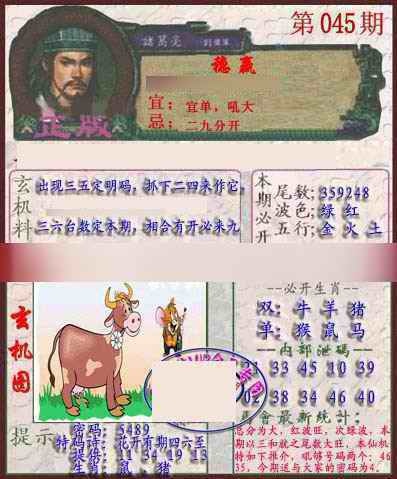 第045期
諸葛亮
稳赢
宜：宜单，吼大
忌：二九分开
正版
玄机料
出现三五定明码，抓下二四来作它。
三六台数定本期，相合有开必来九
本期必开
尾数；359248
波色；绿 红
五行；金 火 土
玄机图
--必开生肖--
双: 牛 羊 猪
单: 猴 鼠 马
--内部泄码--
33 45 10 39
38 34 46 40
最新统计：
总分为大，红波旺，次绿波，本
期以三和就之尾数大旺，本仙机
特如下推介，吼够号码两个：46
35，今期送与大家的密码为4。
提示
密码：5489
特码诗：花开有期四六至
提供：11 34 19 13
生肖：鼠 、猪